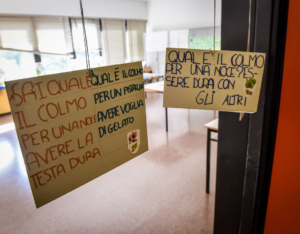 SAI QUALE
IL COLMO
PER UNA NOCE
AVERE LA
TESTA DURA
QUAL È IL COLMO
PER UN PISTACCHIO
AVERE VOGLIA
DI GELATO
QUAL E' IL COLMO
PER UNA NOCE? ES-
SERE DURA CON
GLI ALTRI